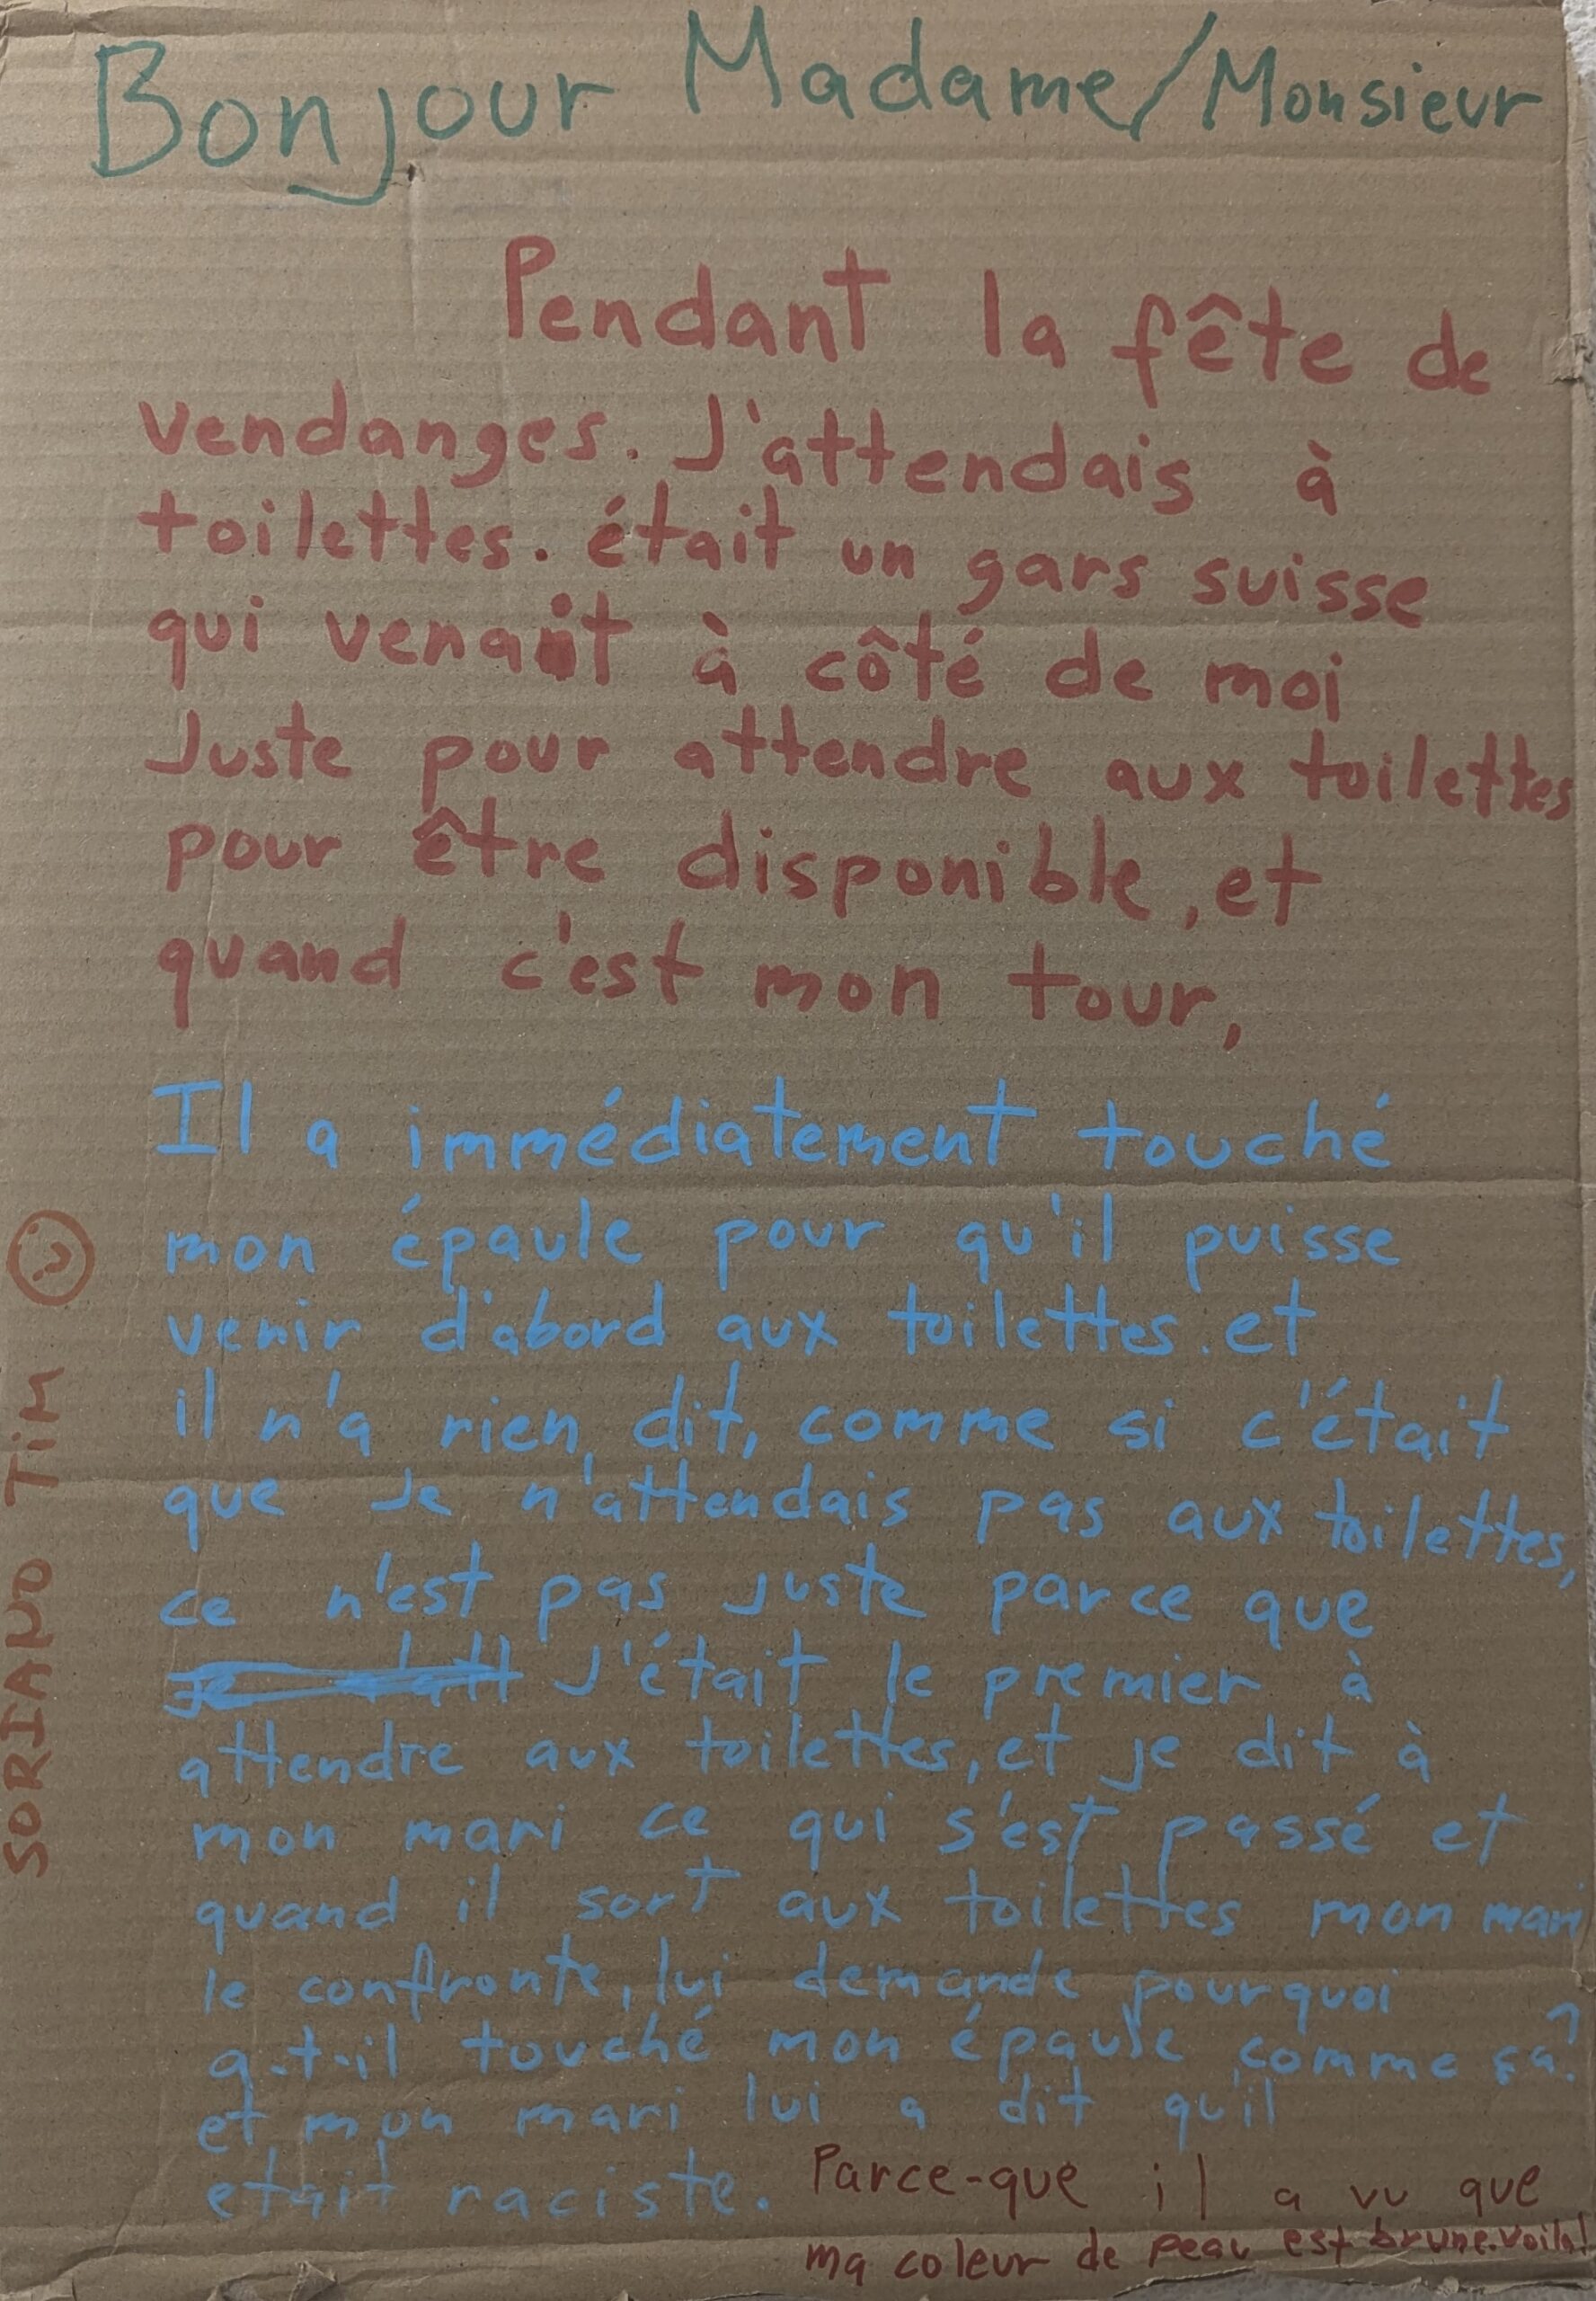 Bonjour Madame/Monsieur
Pendant la fête de
vendanges. J'attendais à
toilettes. était un gars suisse
qui venait à côté de moi
Juste pour attendre aux toilettes
pour être disponible, et
quand c'est mon tour,
Il a immédiatement touché
mon épaule pour qu'il puisse
venir d'abord aux toilettes. et
il n'a rien dit, comme si c'était
que Je n'attendais pas aux toilettes,
ce n'est pas juste parce que
J'était le premier à
attendre aux toilettes, et je dit à
mon mari ce qui s'est passé et
quand il sort aux toilettes mon mari
le confronte, lui demande pourquoi
a-t-il touché mon épaule comme ça?
et mon mari lui a dit qu'il
etait raciste. Parce-que il a vu que
ma coleur de peau est brune. Voilà!
SORIANO TiM